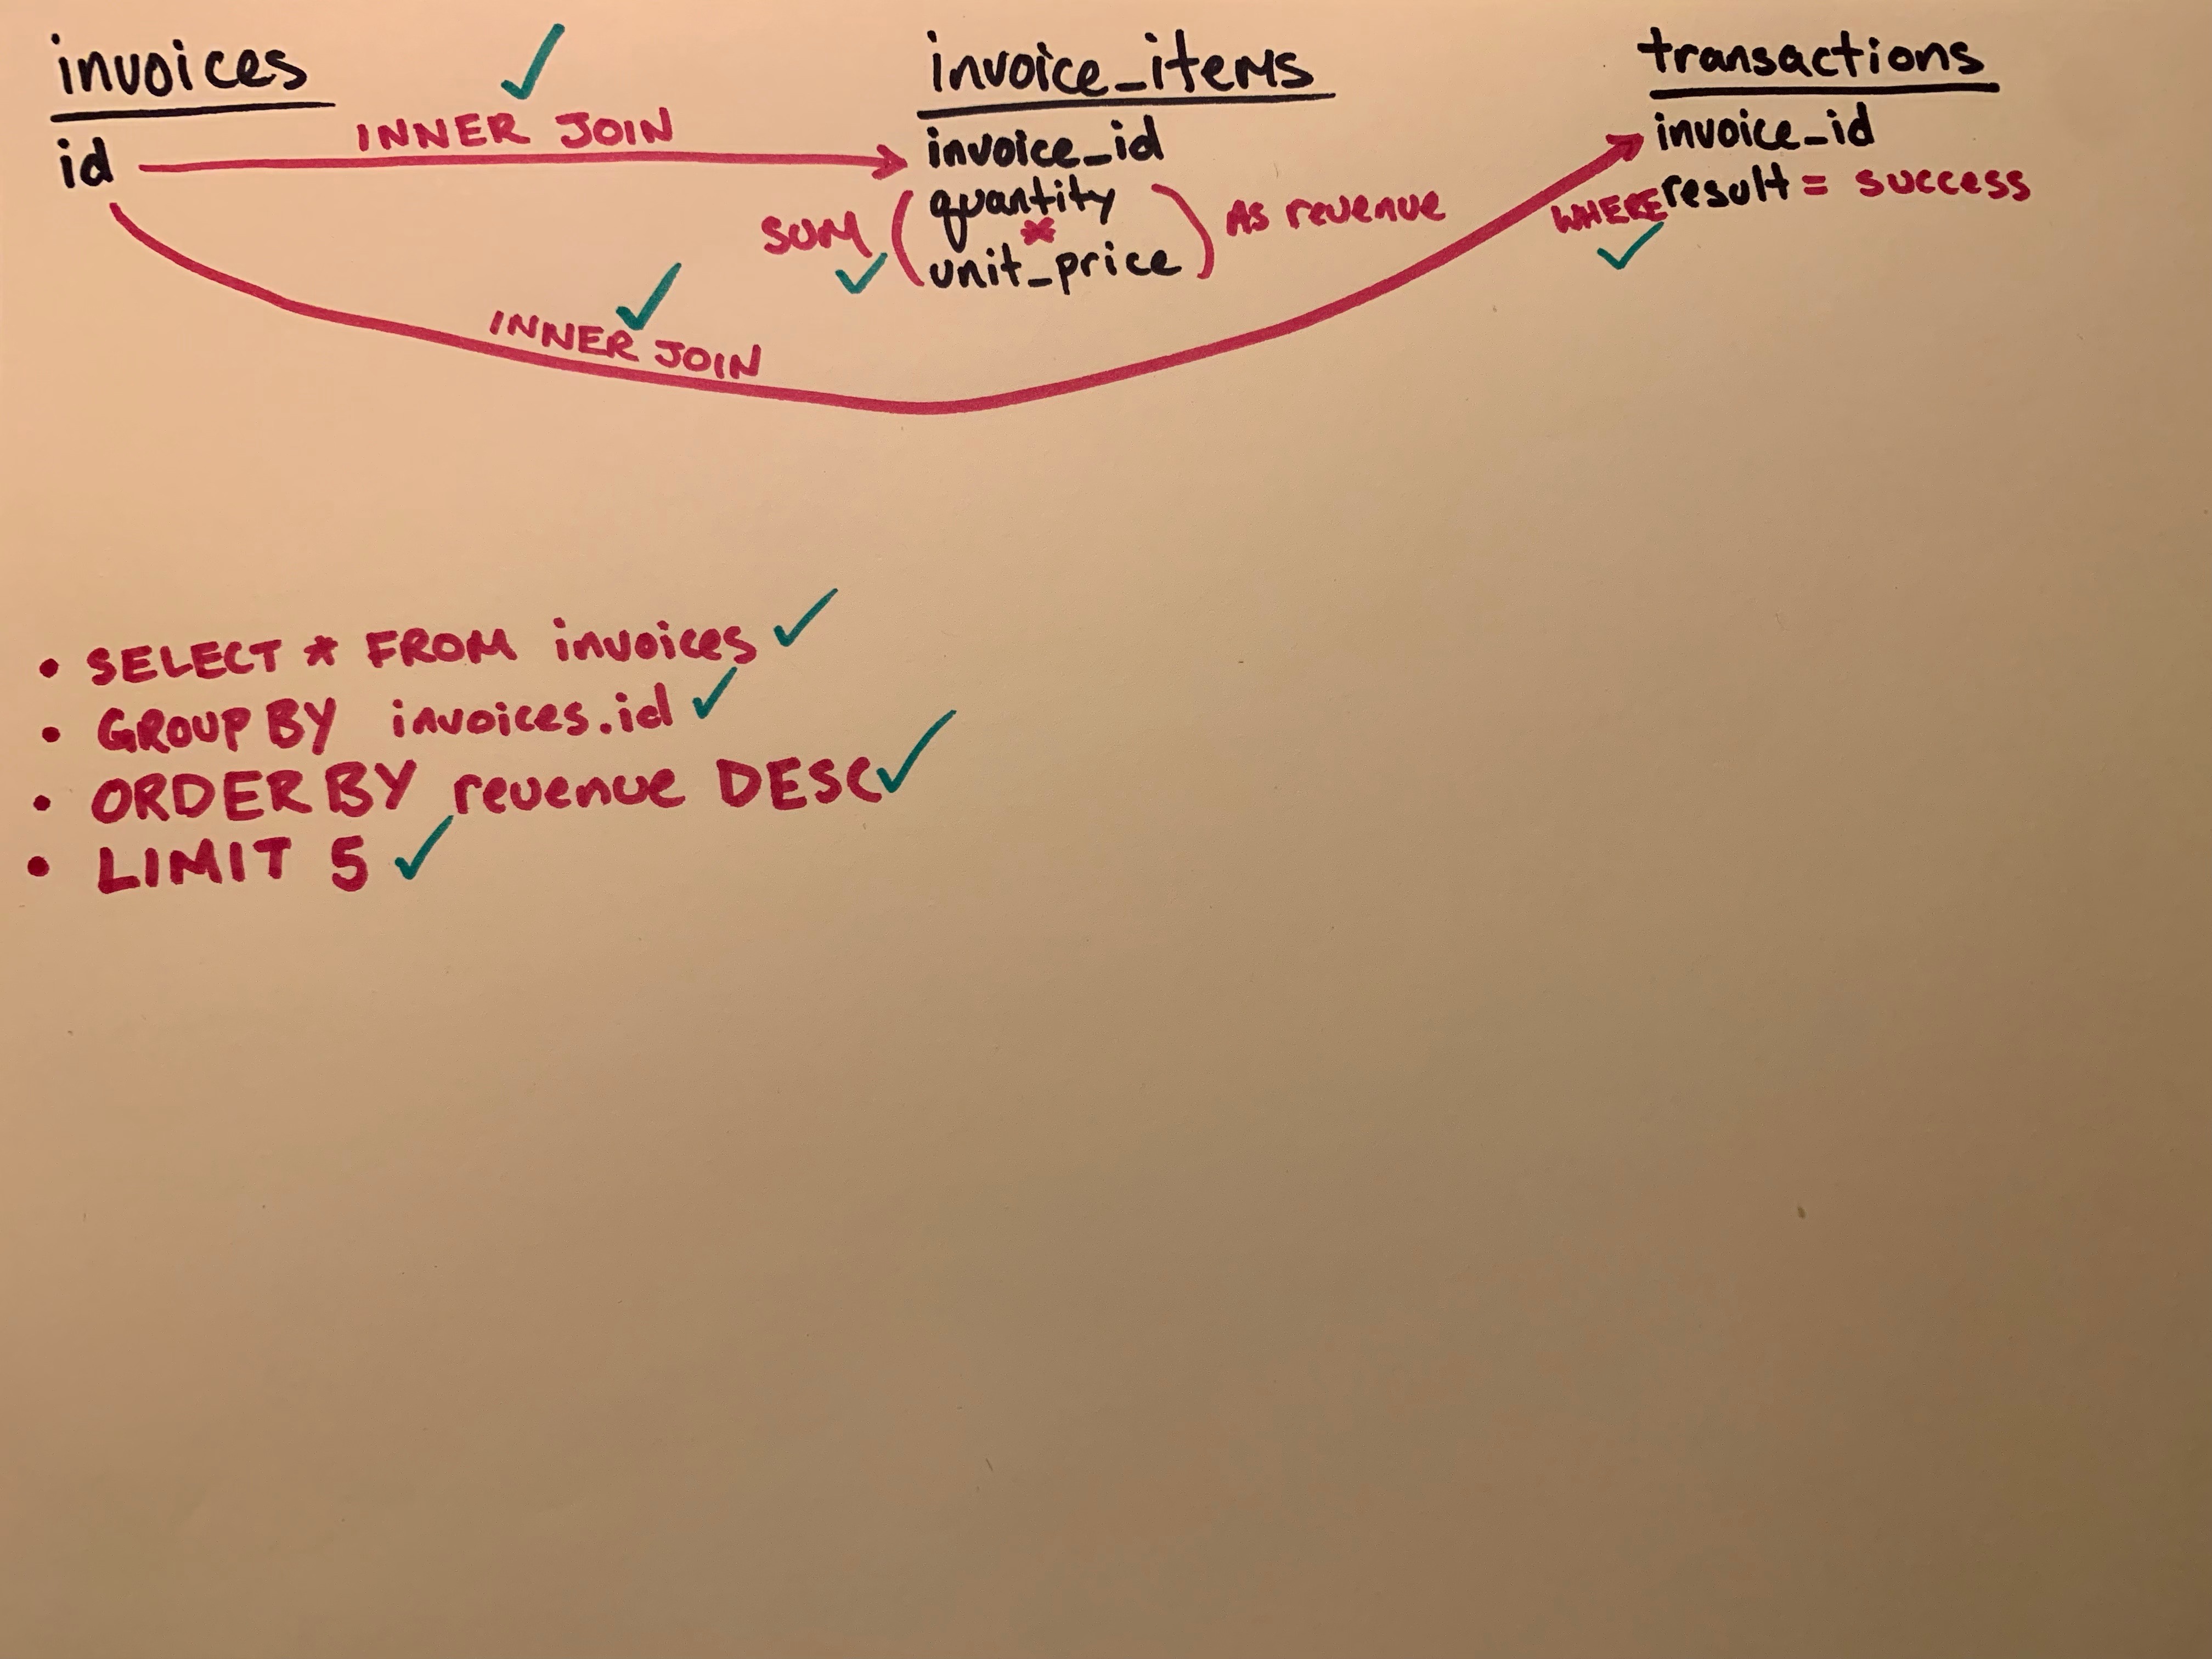 invoices
id
INNER JOIN
INNER JOIN
invoice_items
invoice_id
SUM ( quantity
*
unit_price ) AS revenue
transactions
invoice_id
WHERE result = success
• SELECT * FROM invoices
• GROUP BY invoices.id
• ORDER BY revenue DESC
• LIMIT 5